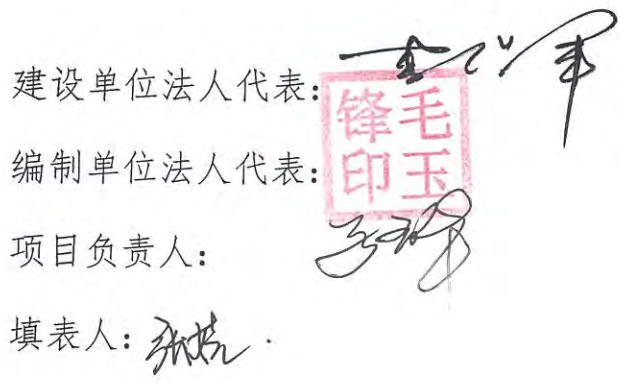 建设单位法人代表：
编制单位法人代表：
毛玉
锋印
项目负责人：
填表人：张